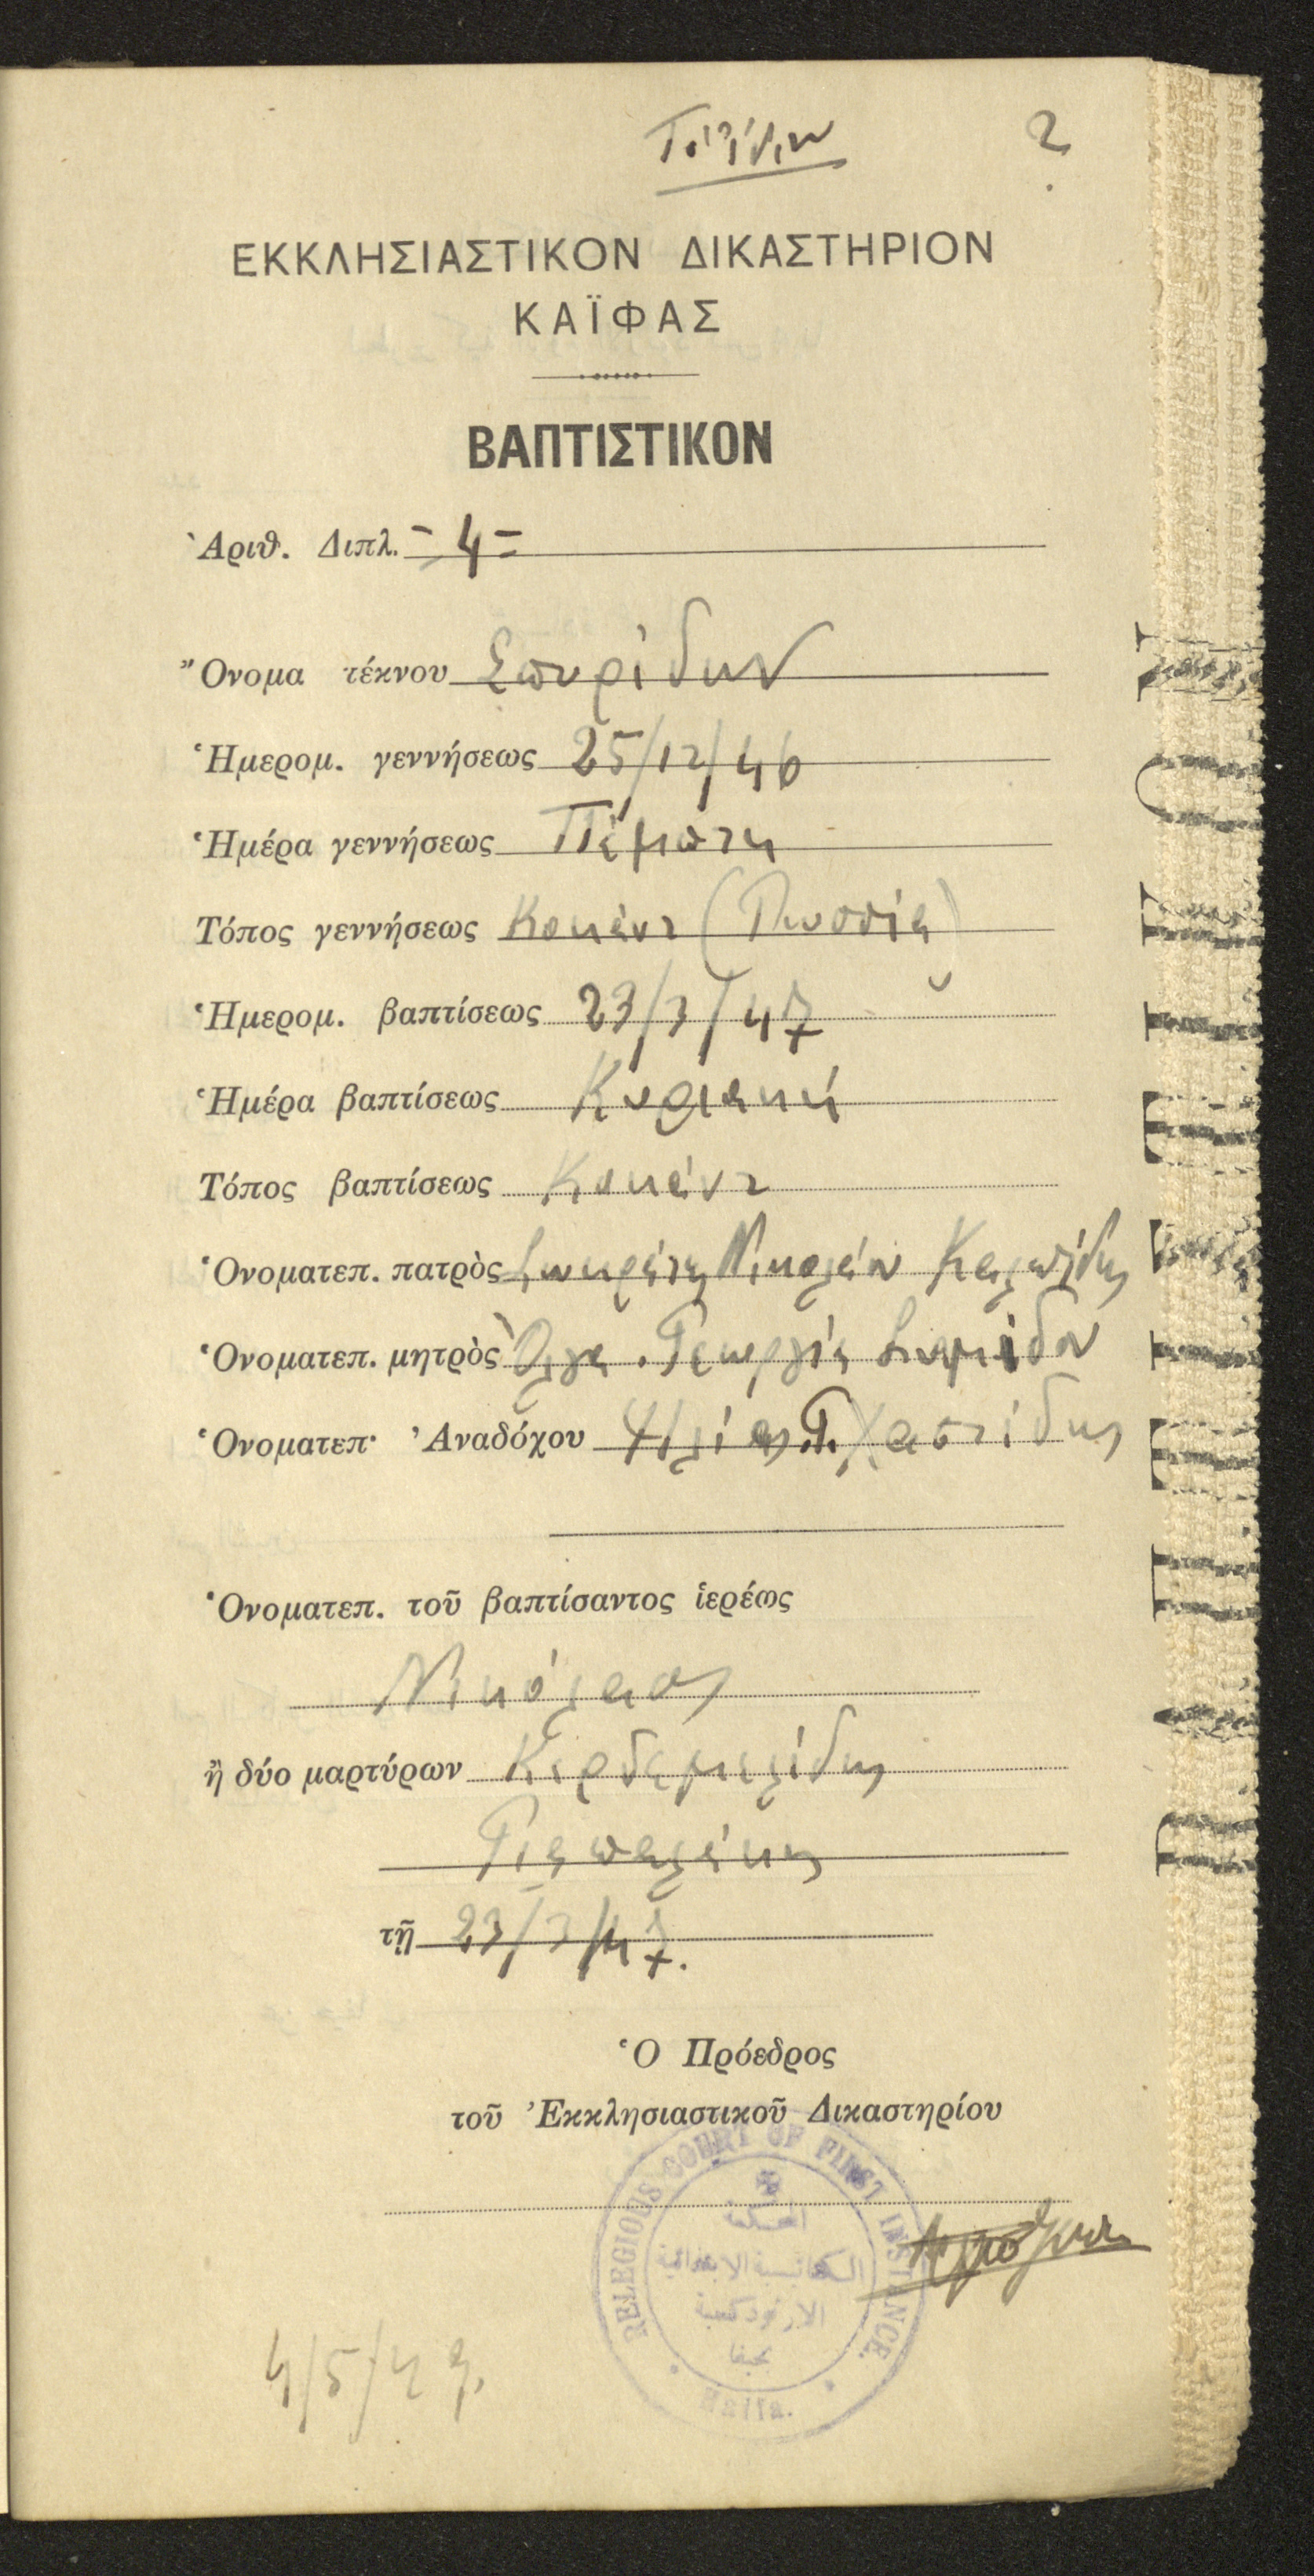 2
ΕΚΚΛΗΣΙΑΣΤΙΚΟΝ ΔΙΚΑΣΤΗΡΙΟΝ
ΚΑΪΦΑΣ
ΒΑΠΤΙΣΤΙΚΟΝ
Ἀριθ. Διπλ. = 4 =
Ὄνομα τέκνου Σπυρίδων
Ἡμερομ. γεννήσεως 25/12/46
Ἡμέρα γεννήσεως Πέμπτη
Τόπος γεννήσεως Κοκάντ (Ρωσσίᾳ)
Ἡμερομ. βαπτίσεως 23/3/47
Ἡμέρα βαπτίσεως Κυριακή
Τόπος βαπτίσεως Κοκάντ
Ὀνοματεπ. πατρὸς Σωκράτης Νικολάου Καλπίδης
Ὀνοματεπ. μητρὸς Ὄλγα Γεωργίου
Ὀνοματεπ. Ἀναδόχου Ἠλίας Γ. Χαστίδης
Ὀνοματεπ. τοῦ βαπτίσαντος ἱερέως
Νικόλαος
ἢ δύο μαρτύρων
τῇ 23/3/47.
Ὁ Πρόεδρος
τοῦ Ἐκκλησιαστικοῦ Δικαστηρίου
RELEGIOUS COURT OF FIRST INSTANCE.
المحكمة
الكنائسية الابتدائية
الارثوذكسية
بحيفا
Haifa.
4/5/49.